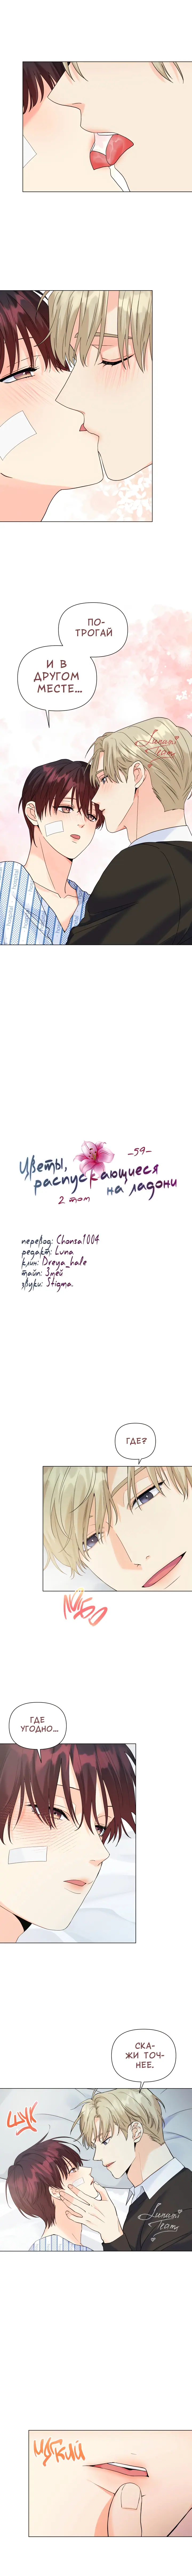 ПО-
ТРОГАЙ
И В
ДРУГОМ
МЕСТЕ...
Lunami
Team
-59-
Цветы,
распускающиеся
на ладони
2 том
перевод: Chonsa1004
редакт: Luna
клин: Dreya_hale
тайп: Змей
звуки: Stigma.
ГДЕ?
ГДЕ
УГОДНО...
СКА-
ЖИ ТОЧ-
НЕЕ.
ЩУК
Lunami
Team
МЯГКИЙ